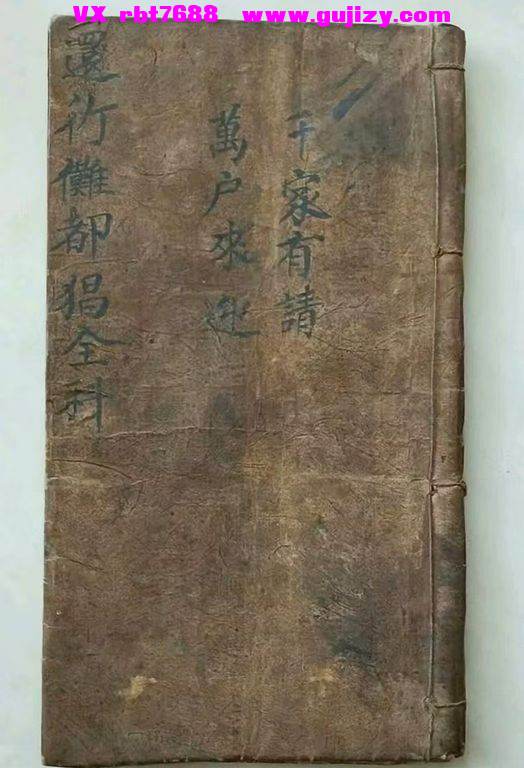 VX rbt7688 www.gujizy.com
千家有請
萬户來迎
還竹儺都猖全科